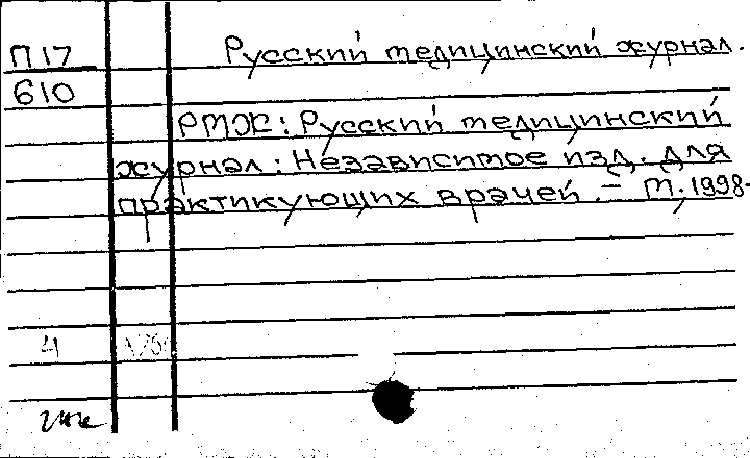 П17 Русский медицинский журнал.
610
РМЖ: Русский медицинский
журнал: Независимое изд. для
практикующих врачей. – М., 1998-
Ч